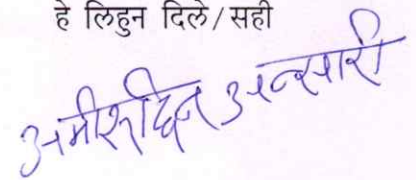 हे लिहुन दिले/सही
अमीरुद्दिन अन्सारी